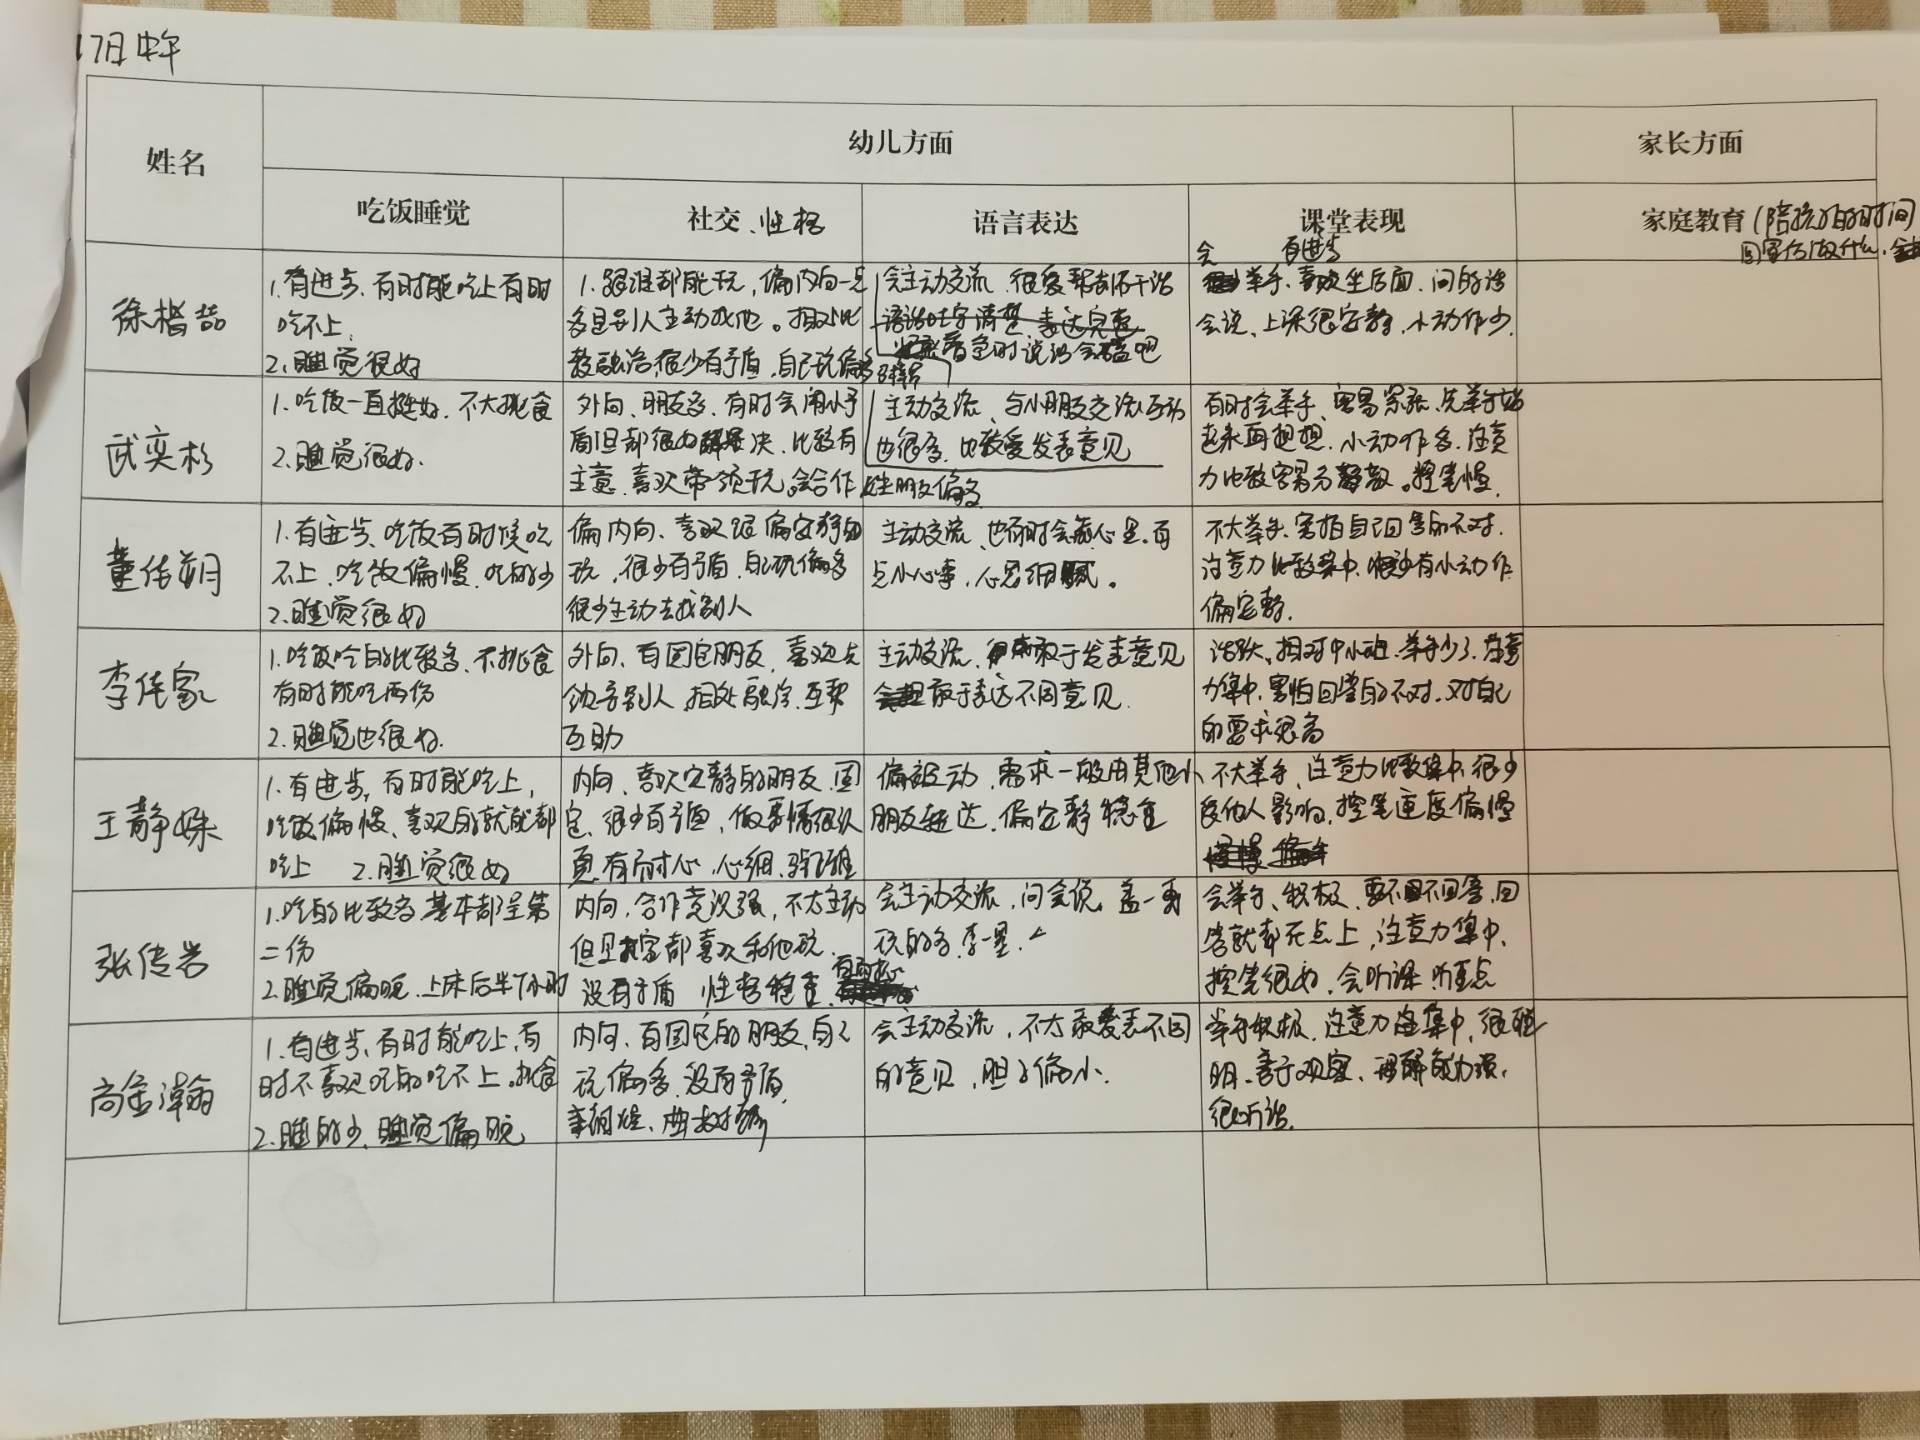 17日中午
姓名
幼儿方面
家长方面
吃饭睡觉
社交、性格
语言表达
课堂表现
家庭教育(陪孩子的时间
回家后做什么、
徐楷喆
1.有进步、有时能吃上有时
吃不上.
2.睡觉很好
1.跟谁都能玩，偏内向一点
多是别人主动找他。相对比
较融洽很少有矛盾，自己玩偏多
会主动交流、很爱帮老师干活
语话吐字清楚、表达完整
着急时说话会磕吧
会 有进步
举手、喜欢坐后面、问的话
会说、上课很安静、小动作少.
武奕杉
1.吃饭一直挺好、不大挑食
2.睡觉很好.
外向、朋友多、有时会闹小矛
盾但都很好解决、比较有
主意、喜欢带领玩。会合作
主动交流、与小朋友交流互动
也很多、比较爱发表意见
女生朋友偏多
有时会举手、容易紧张、先举手站
起来再想想、小动作多、注意
力比较容易分散。控笔慢.
董传玥
1.有进步、吃饭有时候吃
不上、吃饭偏慢、吃的少
2.睡觉很好
偏内向、喜欢跟偏安静的
玩，很少有矛盾、自己玩偏多
很少主动去找别人
主动交流、也有时会藏心里、有
点小心事，心思细腻。
不大举手、害怕自己回答的不对.
注意力比较集中、很少有小动作
偏安静.
李传家
1.吃饭吃的比较多、不挑食
有时能吃两份
2.睡觉也很好.
外向、有固定朋友，喜欢去
别人，相处融洽、互帮
互助
主动交流、敢于发表意见
敢于表达不同意见.
活跃、相对中小班、举手少了、注意
力集中、害怕回答的不对、对自己
的要求很高
王静姝
1.有进步，有时能吃上，
吃饭偏慢、喜欢的就能都
吃上 2.睡觉很好
内向、喜欢安静的朋友、固
定、很少有矛盾，做事情很认
真、有耐心、心细、
偏被动，需求一般由其他小
朋友转达、偏安静稳重
不大举手、注意力比较集中、很少
受他人影响、控笔速度偏慢
张传岩
1.吃的比较多基本都是第
二份
2.睡觉偏晚、上床后半个小时
内向，合作意识强，不大主动
但是大家都喜欢和他玩、
没有矛盾 性格稳重、有耐心
会主动交流，问会说、孟一
玩的多、李一墨.
会举手、积极、要不不回答、回
答就都在点上，注意力集中、
控笔很好、会听课、听重点
尚金瀚
1.有进步、有时能吃上，有
时不喜欢吃的吃不上。挑食
2.睡的少、睡觉偏晚
内向、有固定的朋友，自己
玩偏多、没有矛盾、
会主动交流，不大敢发表不同
的意见，胆子偏小.
举手积极、注意力集中、很聪
明、善于观察、理解能力强、
很听话.